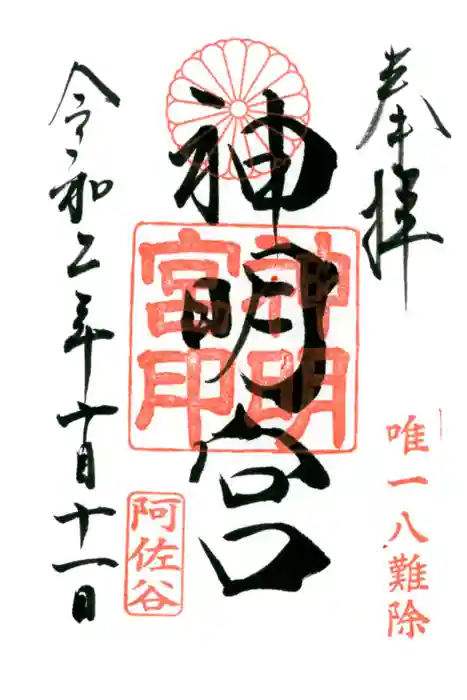 奉拝
唯一八難除
神明宮
神明
宮印
阿佐谷
令和二年十月十一日